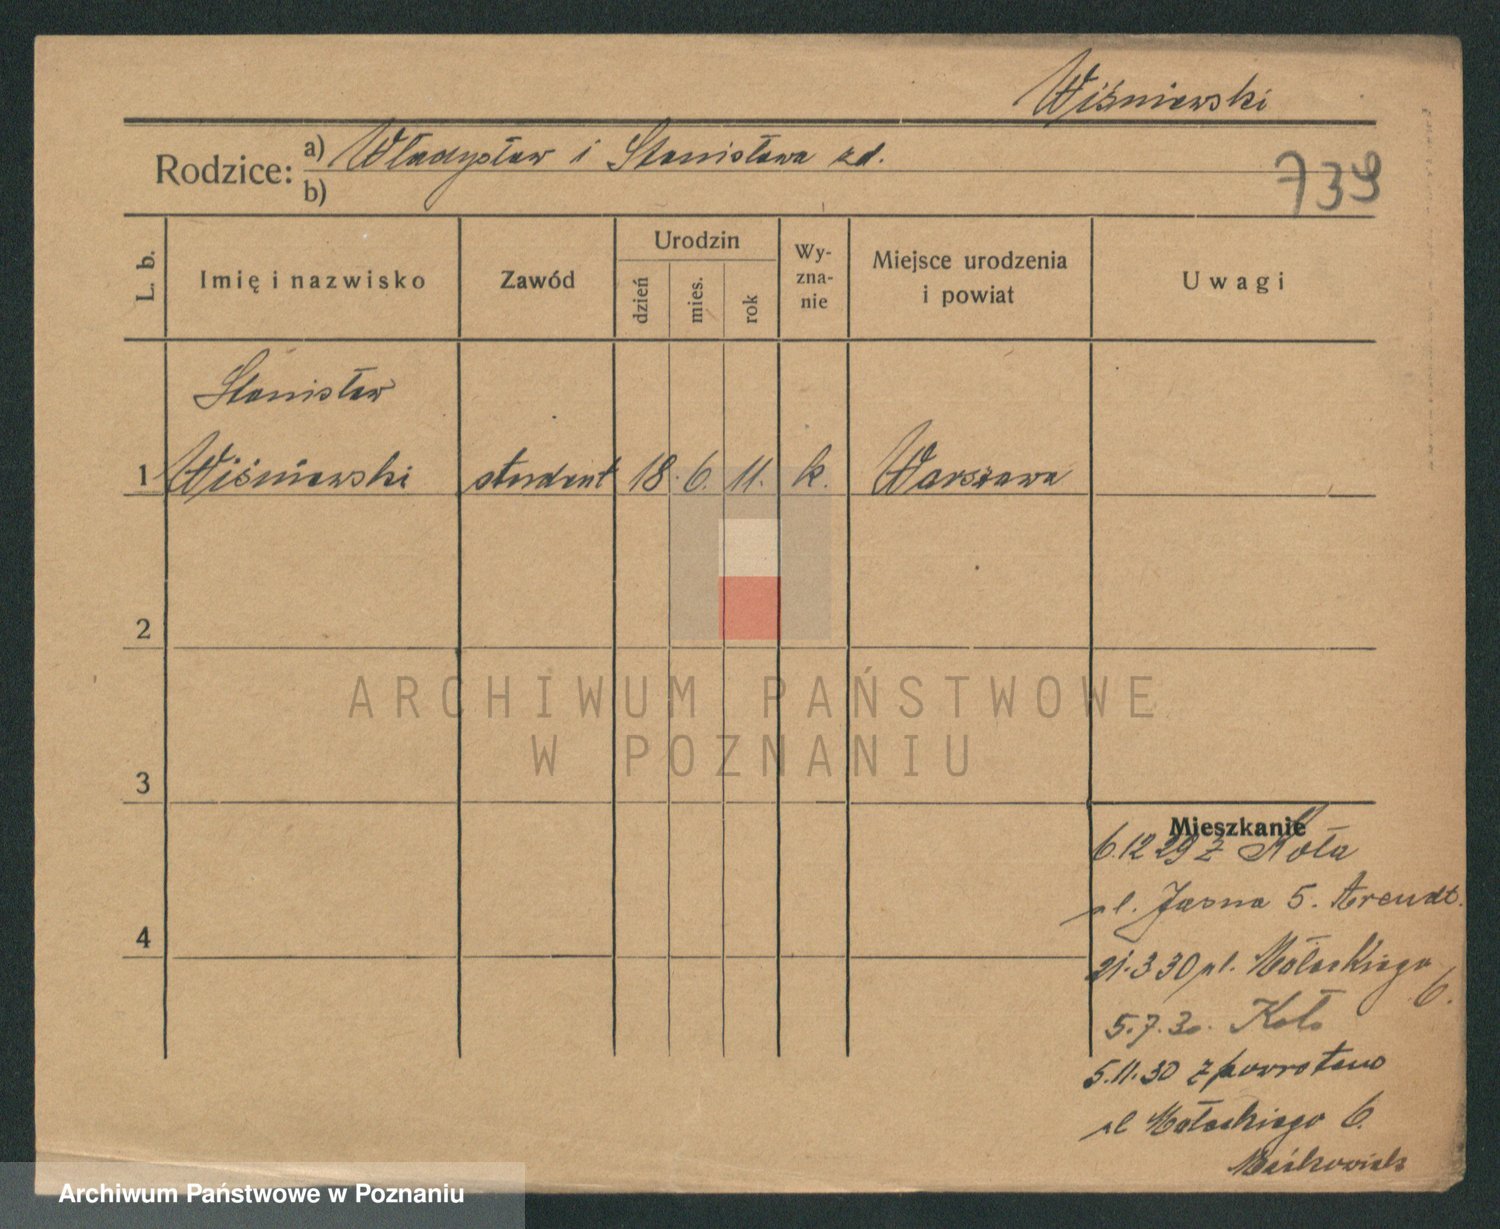 Wiśniewski
Rodzice: a) Władysław i Stanisława zd.
b)
739
L. b.
Imię i nazwisko
Zawód
Urodzin
dzień
mies.
rok
Wy-
zna-
nie
Miejsce urodzenia
i powiat
Uwagi
Stanisław
1 Wiśniewski student 18. 6. 11. k. Warszawa
2
3
4
ARCHIWUM PAŃSTWOWE
W POZNANIU
Mieszkanie
6.12 29 z Koła
ul. Jasna 5. Arendt.
21.3 30 ul.
6.
5.7.30. Koło
5.11.30 z powrotem
ul 6.
Archiwum Państwowe w Poznaniu